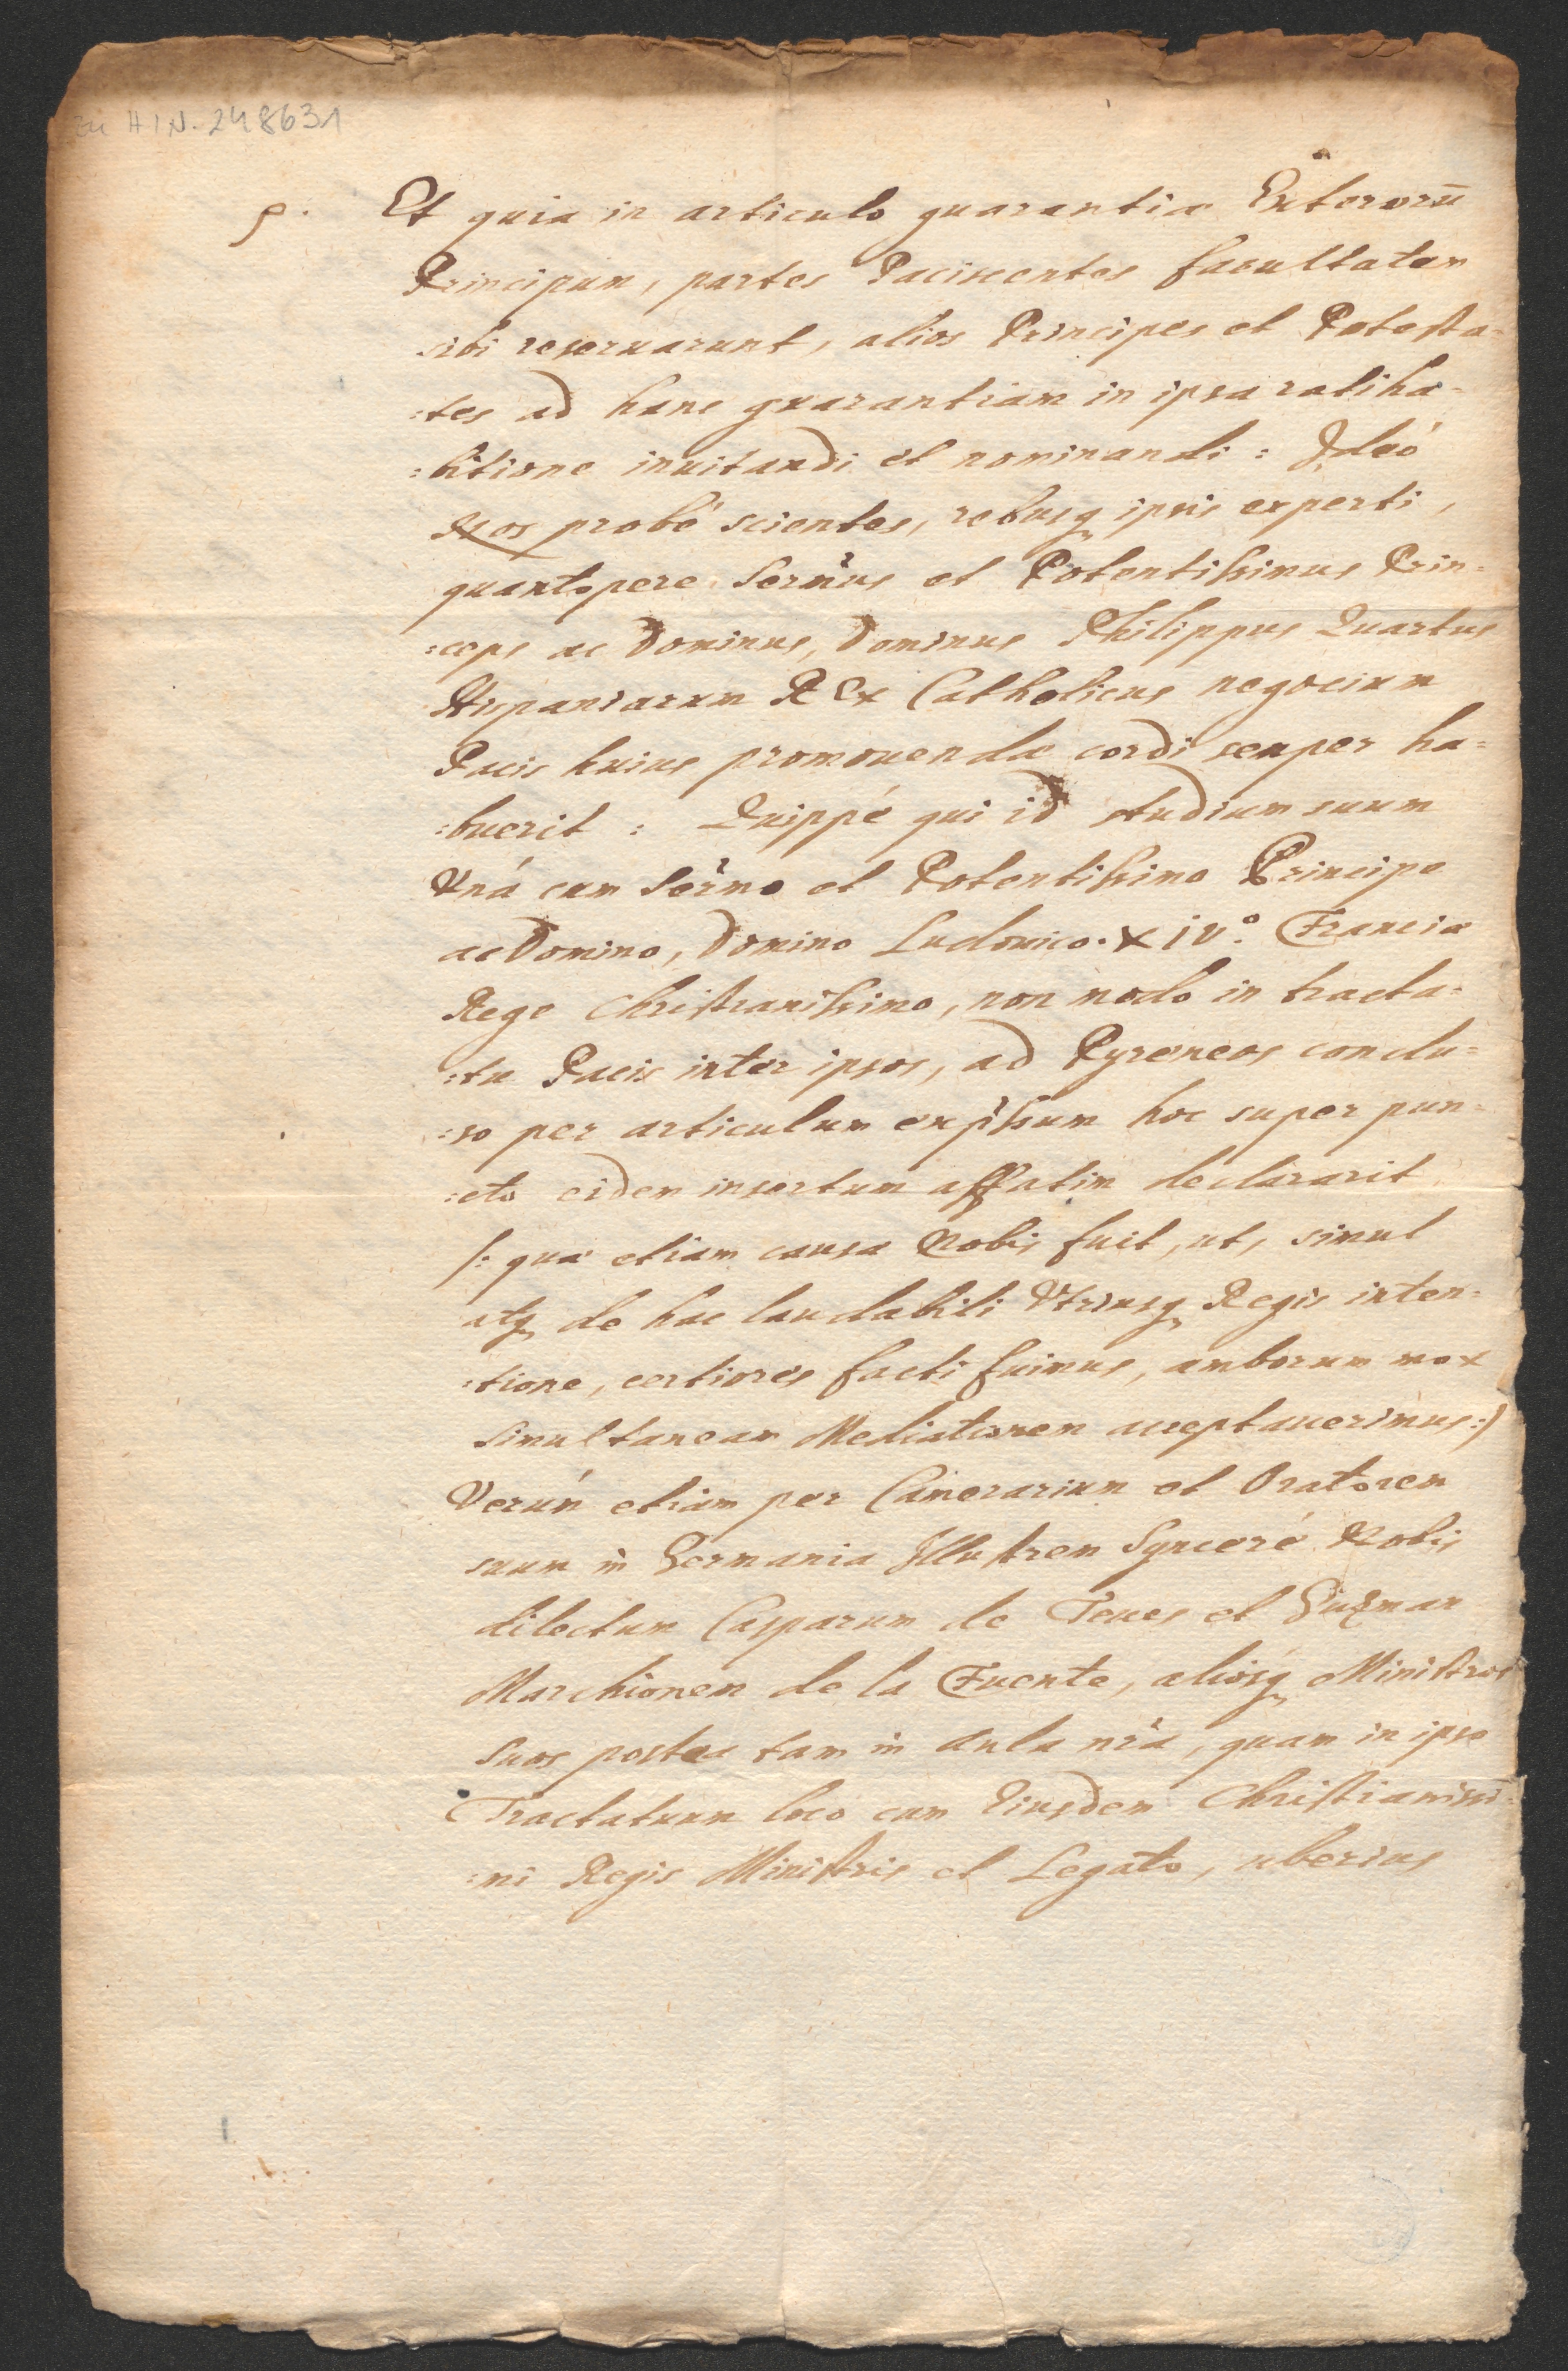 Zu HIN-248631
p. Et quia in articulo guarantiæ Exterorū
Principum, partes Paciscentes facultatem
sibi reseruarunt, alios Principes et Potesta=
:tes ad hanc guarantiam in ipsa ratiha=
:bitione inuitandi et nominandi: Ideó
Nos probé scientes, rebusq ipsis experti,
quantopere Sermus et Potentissimus Prin=
:ceps ac Dominus, Dominus Philippus Quartus
Hispaniarum REx Catholicus negocium
Pacis huius promouendæ cordi semper ha=
:buerit: Quippé qui id studium suum
Vná cum Sermo et Potentissimo Principe
ac Domino, Domino Ludouico. XIV.º Franciæ
Rege Christianissimo, non modo in tracta=
:tu Pacis inter ipsos, ad Pyreneos conclu=
:so per articulum exp̃ssum hoc super pun=
:cto eidem insertum affatim declararit
/: quæ etiam causa Nobis fuit, ut, simul
atq de hac laudabili Vtriusq Regis inten=
:tione, certiores facti fuimus, amborum mox
simultaneam Mediationem acceptauerimus :/
Verúm etiam per Camerarium et Oratorem
suum in Germania Illustrem Synceré Nobis
dilectum Casparum de Teues et Guzman
Marchionem de la Fuente, aliosq Ministros
suos postea tam in Aula nr̃a, quam in ipso
Tractatuum loco cum Eiusdem Christianissi=
:mi Regis Ministris et Legato, uberius